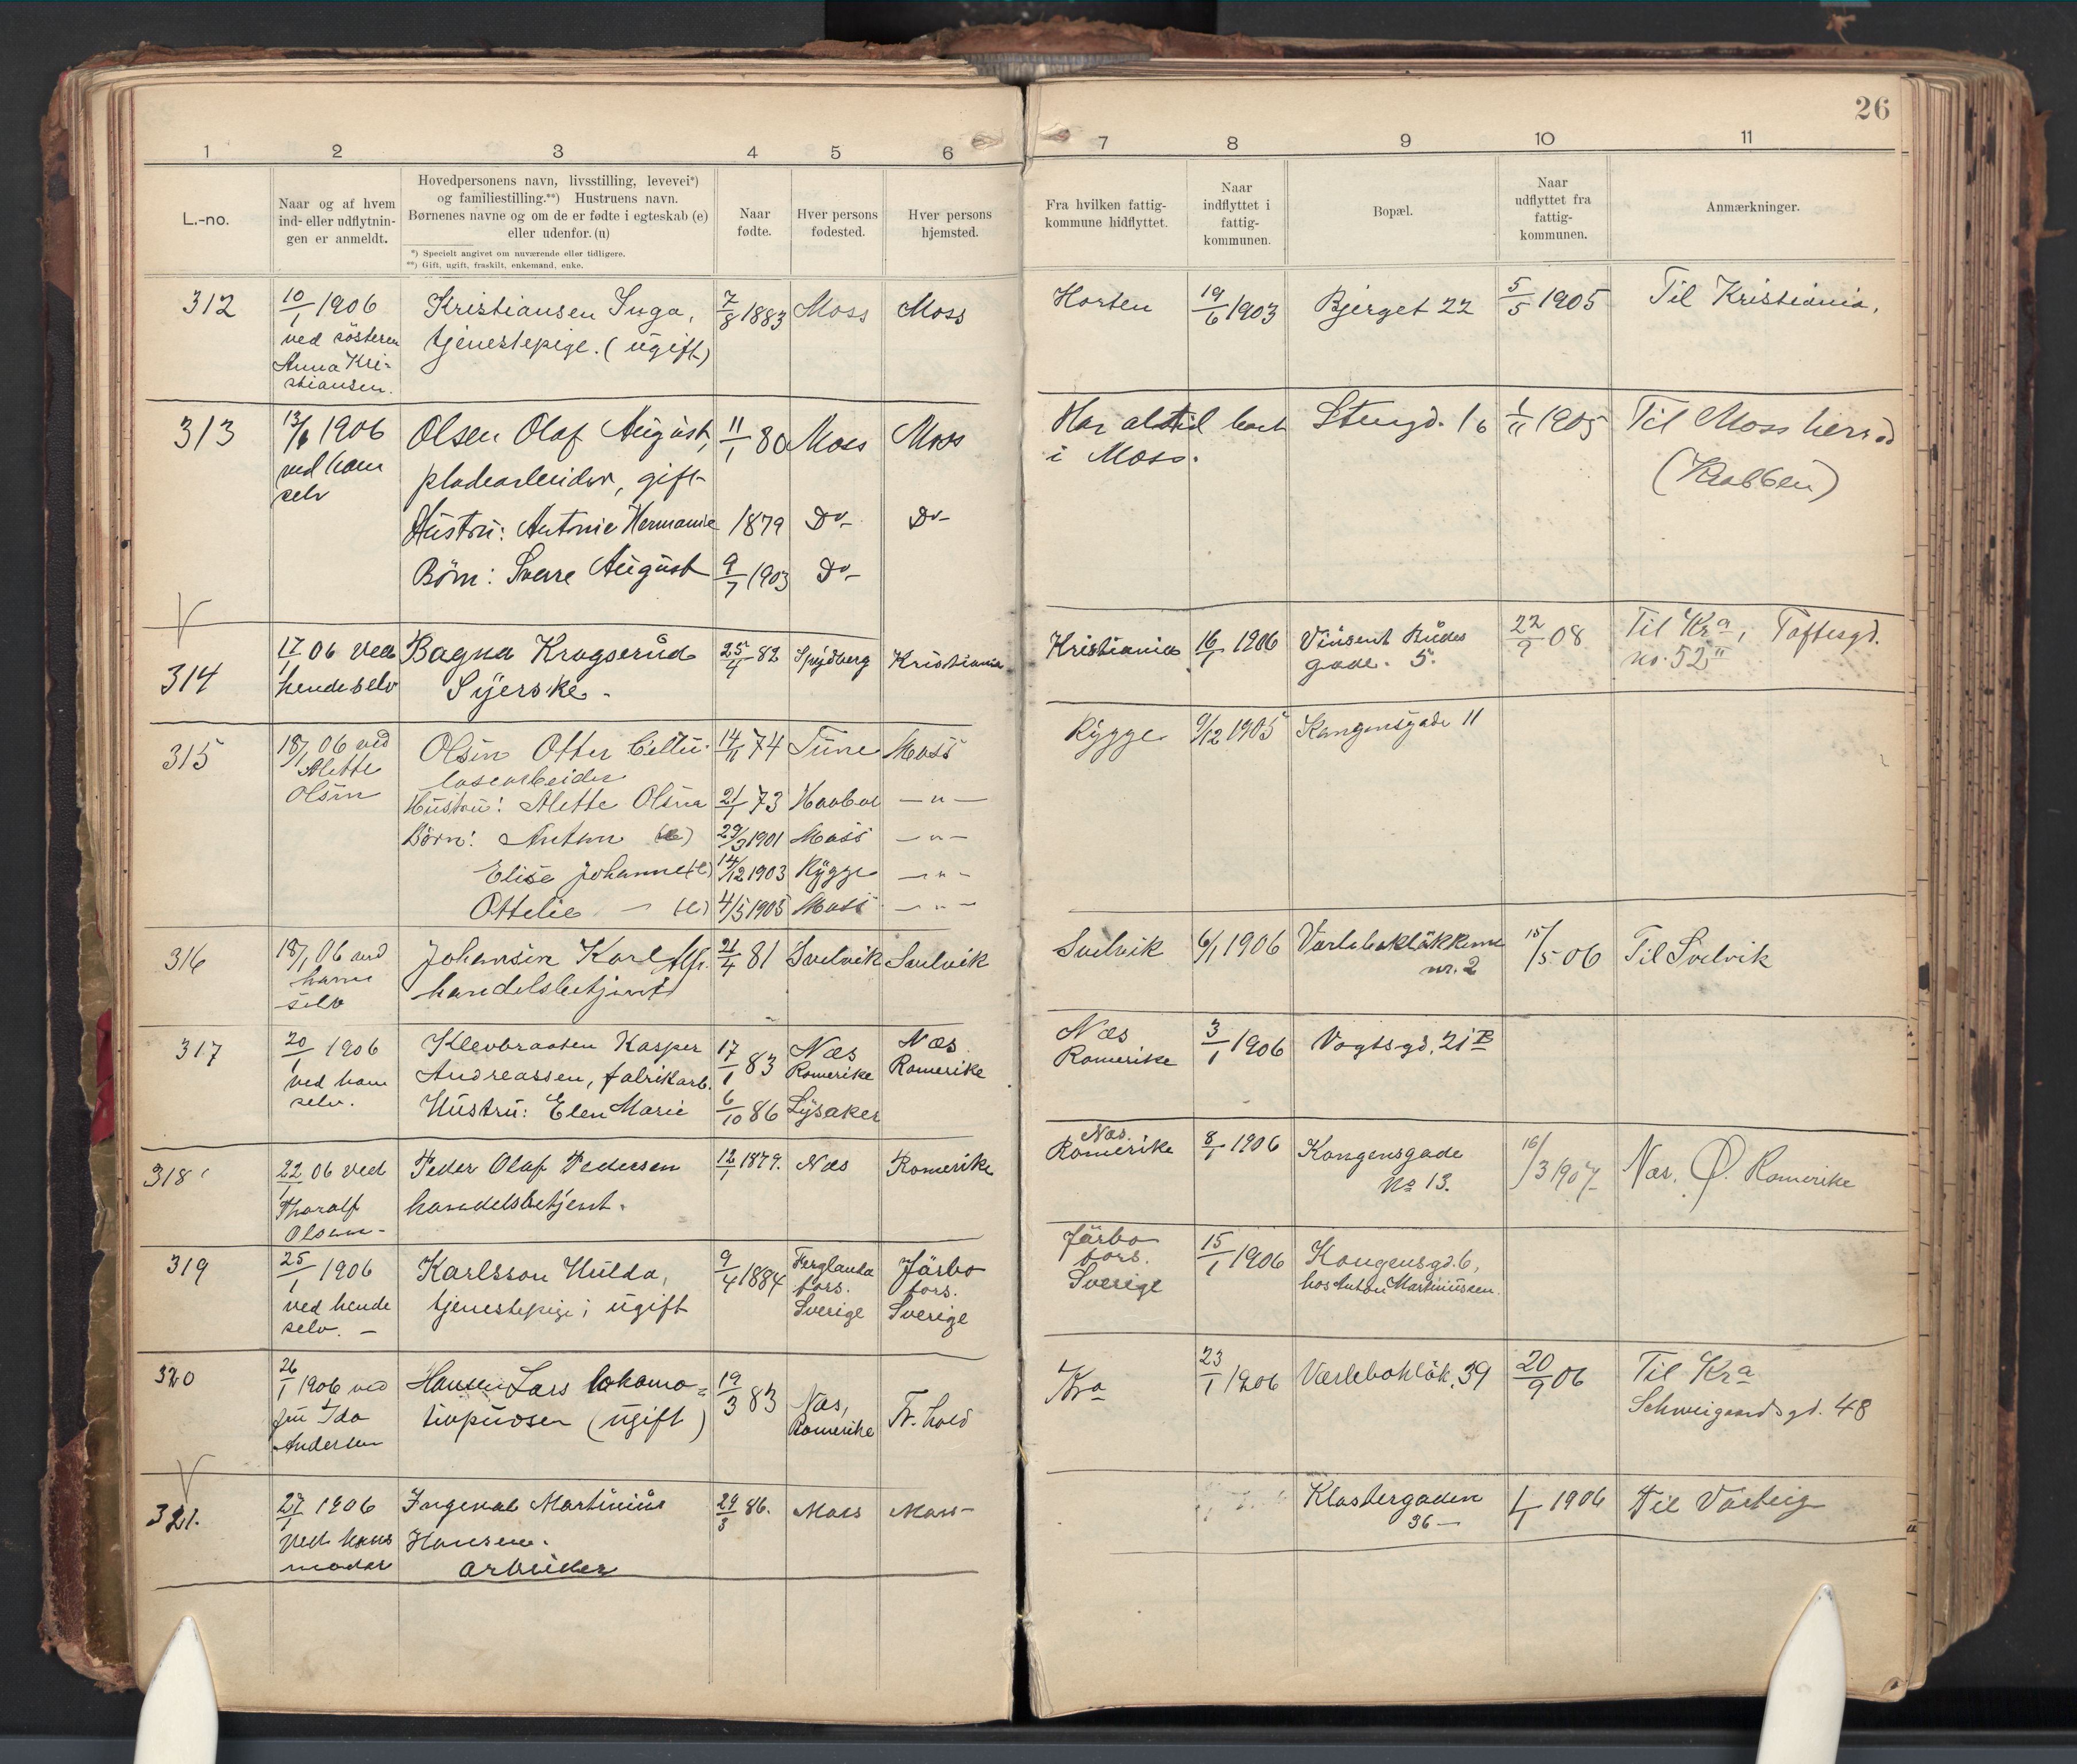 26
1 2 3 4 5 6 7 8 9 10 11
L.-no.
Naar og af hvem
ind- eller udflytnin-
gen er anmeldt.
Hovedpersonens navn, livsstilling, levevei*)
og familiestilling.**) Hustruens navn.
Børnenes navne og om de er fødte i egteskab (e)
eller udenfor. (u)
*) Specielt angivet om nuværende eller tidligere.
**) Gift, ugift, fraskilt, enkemand, enke.
Naar
fødte.
Hver persons
fødested.
Hver persons
hjemsted.
Fra hvilken fattig-
kommune hidflyttet.
Naar
indflyttet i
fattig-
kommunen.
Bopæl.
Naar
udflyttet fra
fattig-
kommunen.
Anmærkninger.
312
10/1 1906
ved søsteren
Anna Kri-
stiansen.
Kristiansen Inga,
tjenestepige. (ugift)
7/8 1883
Moss
Moss
Horten
19/6 1903
Bjerget 22
5/5 1905
Til Kristiania.
313
13/1 1906
ved ham
selv
Olsen Olaf August,
pladearbeider, gift
Hustru: Antonie Hermanie
Börn: Sverre August
11/1 80
1879
9/7 1903
Moss
Do
Do
Moss
Do
Har altid boet
i Moss.
Stengd. 16
1/11 1905
Til Moss herred
(Krabben)
314
17/1 06 ved
hende selv
Bagna Krogserud
Syerske.
25/4 82
Spydberg
Kristiania
Kristiania
16/1 1906
Vinsent Budes
gade. 5.
22/9 08
Til Kra, Toftesgd.
no. 52 II
315
18/1 06 ved
Alette
Olsen
Olsen Otter Cellu-
losearbeider
Hustru: Alette Olsen
Børn: Anton (e)
Elise Johanne (e)
Ottelie — (e)
14/11 74
21/1 73
29/3 1901
14/12 1903
4/5 1905
Tune
Haabøl
Moss
Rygge
Moss
Moss
— " —
— " —
— " —
— " —
Rygge
9/12 1905
Kongensgade 11
316
18/1 06 ved
ham
selv
Johansen Karl Alf.
handelsbetjent
21/4 81
Svelvik
Svelvik
Svelvik
6/1 1906
Varlebakløkkene
nr. 2
15/5 06
Til Svelvik
317
20/1 1906
ved ham
selv.
Klevbraaten Kasper
Andreassen, fabrikarb.
Hustru: Elen Marie
17/1 83
6/10 86
Næs
Romerike
Lysaker
Næs
Romerike
Næs
Romerike
3/1 1906
Vogtsgd. 21 B
318
22/1 06 ved
Tharalf
Olsen
Peder Olaf Pedersen
handelsbetjent.
12/1 1879.
Næs
Romerike
Næs.
Romerike
8/1 1906
Kongensgade
No 13.
16/3 1907
Næs. Ø. Romerike
319
25/1 1906
ved hende
selv. —
Karlsson Hulda,
tjenestepige; ugift
9/4 1884
Ferglanda
fors.
Sverige
Järbo
fors.
Sverige
Järbo
fors.
Sverige
15/1 1906
Kongensgd. 6,
hos Anton Martiniussen.
320
26/1 1906 ved
fru Ida
Andersen
Hansen Lars lokomo=
tivpudser (ugift)
19/3 83
Næs,
Romerike
Tr. hold
Kra
23/1 1906
Værlebakløk. 39
20/9 06
Til Kra
Schweigaardsgd. 48
321.
27/1 1906
Ved hans
moder
Ingeval Martinius
Hansen.
arbeider
29/3 86.
Moss
Moss
Klostergaden
36 —
1/1 1906
Til Varteig